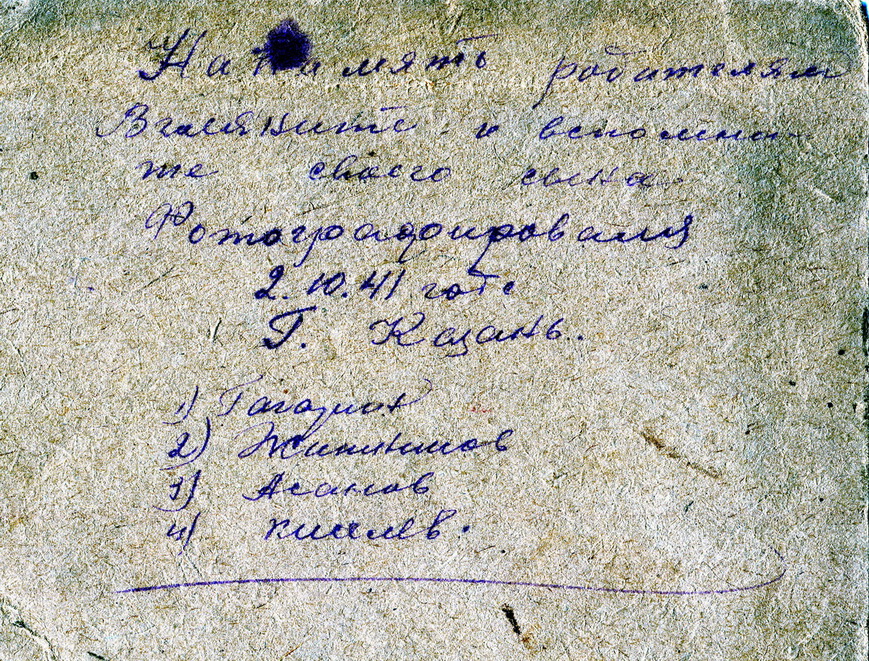 На память родителям
Взгляните и вспомни-
те своего сына
Фотографировался
2.10.41 года
Г. Казань.
1)
2)
3) Асанов
4) Киялев.